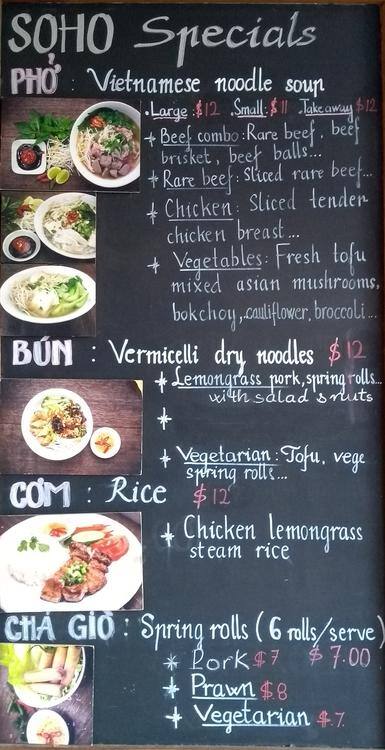 SOHO Specials
PHỞ : Vietnamese noodle soup
• Large : $12 . Small : $11 . Take away $12
* Beef combo : Rare beef, beef
brisket, beef balls...
* Rare beef : Sliced rare beef...
* Chicken : Sliced tender
chicken breast...
* Vegetables : Fresh tofu
mixed asian mushrooms,
bokchoy, cauliflower, broccoli...
BÚN : Vermicelli dry noodles $12
* Lemongrass pork, spring rolls...
with salad & nuts
*
* Vegetarian : Tofu, vege
spring rolls...
CƠM : Rice $12
* Chicken lemongrass
steam rice
CHẢ GIÒ : Spring rolls (6 rolls/serve)
* Pork $7 $7.00
* Prawn $8
* Vegetarian $7